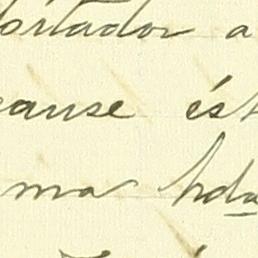 ortador a
cause ést
ma hda